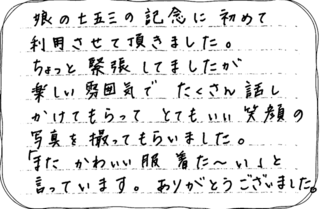 娘の七五三の記念に初めて
利用させて頂きました。
ちょっと緊張してましたが
楽しい雰囲気でたくさん話し
かけてもらってとてもいい笑顔の
写真を撮ってもらいました。
「またかわいい服着た〜い」と
言っています。ありがとうございました。